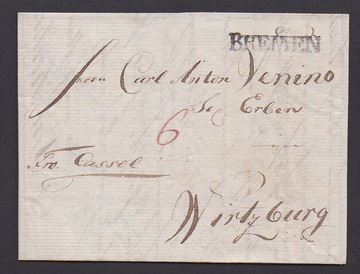 BREMEN
Herrn Carl Anton Venino
Se Erben
6
Fro. Cassel
Wirtzburg